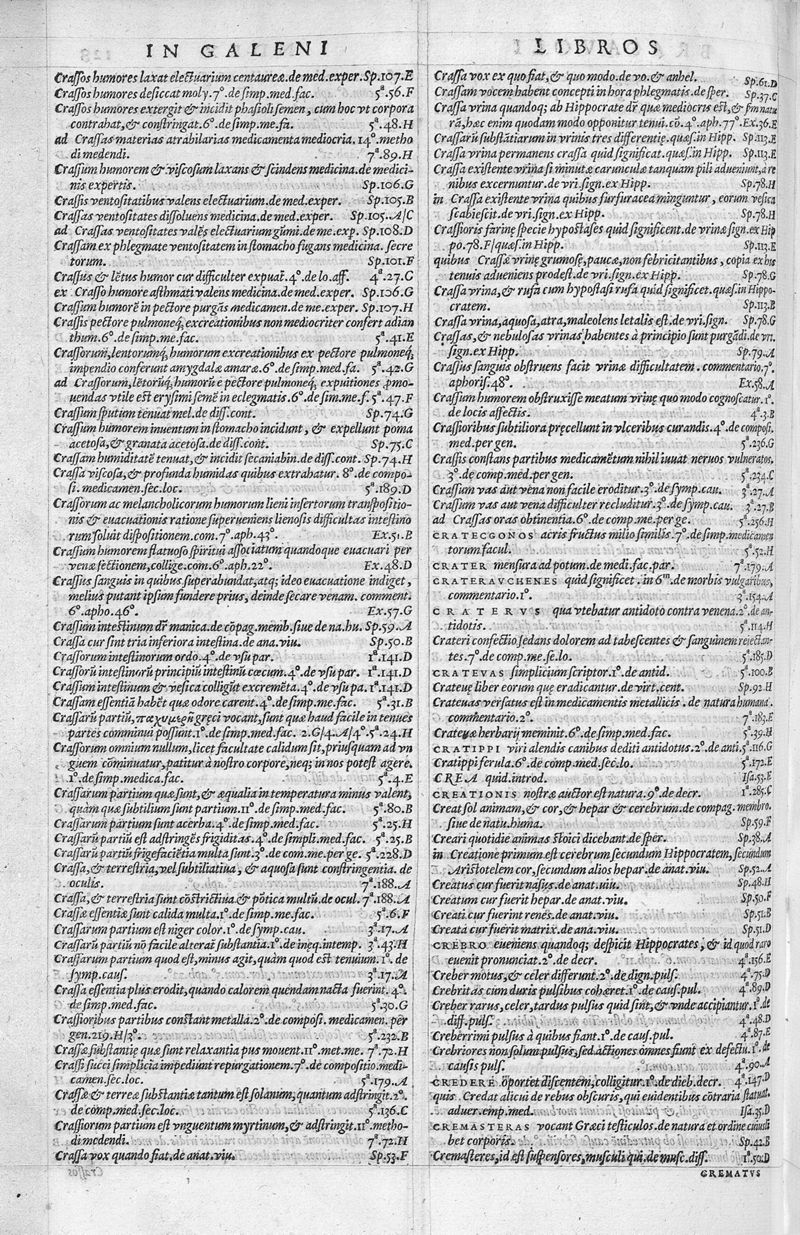 IN GALENI
Crassos humores laxat electuarium centaureæ.de med.exper. Sp.107.E
Crassos humores desiccat moly.7°.de simp.med.fac. 5ª.56.F
Crassos humores extergit & incidit phasioli semen, cum hoc vt corpora
contrahat,& constringat.6°.de simp.me.fa. 5ª.48.H
ad Crassas materias atrabilarias medicamenta mediocria.14°.metho
di medendi. 7ª.89.H
Crassum humorem & viscosum laxans & scindens medicina.de medici-
nis expertis. Sp.106.G
Crassis ventositatibus valens electuarium.de med.exper. Sp.105.B
Crassas ventositates dissoluens medicina.de med.exper. Sp.105.A/C
ad Crassas ventositates valēs electuarium gūmi.de me.exp. Sp.108.D
Crassam ex phlegmate ventositatem in stomacho fugans medicina. secre
torum. Sp.101.F
Crassus & lētus humor cur difficulter expuat.4°.de lo.aff. 4ª.27.G
ex Crasso humore asthmati valens medicina.de med.exper. Sp.106.G
Crassum humorē in pectore purgās medicamen.de me.exper. Sp.107.H
Crassis pectore pulmoneq, excreationibus non mediocriter confert adian
thum.6°.de simp.me.fac. 5ª.41.E
Crassorum,lentorumq, humorum excreationibus ex pectore pulmoneq,
impendio conferunt amygdalæ amaræ.6°.de simp.med.fa. 5ª.42.G
ad Crassorum,lētorūq, humorū e pectore pulmoneq, expuitiones ,pmo-
uendas vtile est erysimi semē in eclegmatis.6°.de sim.me.f. 5ª.47.F
Crassum sputum tenuat mel.de diss.cont. Sp.74.G
Crassum humorem inuentum in stomacho incidunt, & expellunt poma
acetosa,& granata acetosa.de diss.cont. Sp.75.C
Crassam humiditatē tenuat,& incidit secaniabin.de diss.cont. Sp.74.H
Crassa viscosa,& profunda humidas quibus extrahatur. 8°.de compo-
si.medicamen.sec.loc. 5ª.189.D
Crassorum ac melancholicorum humorum lieni insertorum transpositio-
nis & euacuationis ratione superueniens lienosis difficultas intestino
rum soluit dispositionem.com.7°.aph.43°. Ex.51.B
Crassum humorem flatuoso spiritui associatum quandoque euacuari per
venæ sectionem,collige.com.6°.aph.22°. Ex.48.D
Crassus sanguis in quibus superabundat,atq; ideo euacuatione indiget,
melius putant ipsum fundere prius, deinde secare venam. comment.
6°.apho.46°. Ex.57.G
Crassum intestinum dr̄ manica.de cōpag.memb.siue de na.hu. Sp.59.A
Crassa cur sint tria inferiora intestina.de ana.viu. Sp.50.B
Crassorum intestinorum ordo.4°.de vsu par. 1ª.141.D
Crassorū intestinorum principiū intestinū cœcum.4°.de vsu par. 1ª.141.D
Crassum intestinum & vesica colligūt excremēta.4°.de vsu pa. 1ª.141.D
Crassam essentiā habēt quæ odore carent.4°.de simp.me.fac. 5ª.31.B
Crassarū partiū, παχυμερῆ græci vocant,sunt quæ haud facile in tenues
partes comminui possunt.1°.de simp.med.fac. 2.G/4.A/4°. 5ª.24.H
Crassorum omnium nullum, licet facultate calidum sit,priusquam ad vn
guem cōminuatur, patitur à nostro corpore,neq; in nos potest agere.
1°.de simp.medica.fac. 5ª.4.E
Crassarum partium quæ sunt, & æqualia in temperatura minus valent,
quàm quæ subtilium sunt partium.11°.de simp.med.fac. 5ª.80.B
Crassarum partium sunt acerba.4°.de simp.med.fac. 5ª.25.H
Crassarū partiū est adstringēs frigiditas.4°.de simpli.med.fac. 5ª.25.B
Crassarū partiū frigefaciētia multa sunt.3°.de com.me.per ge. 5ª.228.D
Crassa,& terrestria,vel subtiliatiua, & aquosa sunt constringentia. de
oculis. 7ª.188.A
Crassa, & terrestria sunt cōstrictiua & pōtica multū.de ocul. 7ª.188.A
Crassæ essentiæ sunt calida multa.1°.de simp.me.fac. 5ª.6.F
Crassarum partium est niger color.1°.de symp.cau. 3ª.17.A
Crassarū partiū nō facile alteraī substantia.1°.de ineq.intemp. 3ª.43.H
Crassarum partium quod est,minus agit,quàm quod est tenuium.1°.de
symp.caus. 3ª.17.A
Crassa essentia plus erodit, quando calorem quendam nacta fuerint.4°.
de simp.med.fac. 5ª.30.G
Crassioribus partibus constant metalla.2°.de composi. medicamen.per
gen.219.H/3°. 5ª.232.B
Crassæ substantię quæ sunt relaxantia pus mouent.11°.met.me. 7ª.72.H
Crassi succi simplicia impediunt repurgationem.7°.de compositio.medi-
camen.sec.loc. 5ª.179.A
Crassæ & terreæ substantiæ tantum est solanum,quantum adstringit.2°.
de comp.med.sec.loc. 5ª.136.C
Crassiorum partium est vnguentum myrtinum,& adstringit.11°.metho-
di medendi. 7ª.72.H
Crassa vox quando fiat.de anat.viu. Sp.53.F
LIBROS
Crassa vox ex quo fiat,& quo modo.de vo.& anhel. Sp.61.D
Crassam vocem habent concepti in hora phlegmatis.de sper. Sp.37.C
Crassa vrina quandoq; ab Hippocrate dr̄ quæ mediocris est,& ꝑm natu
rā,hæc enim quodam modo opponitur tenui.cō.4°.aph.77°. Ex.36.E
Crassarū substātiarum in vrinis tres differentię.quæs.in Hipp. Sp.113.E
Crassa vrina permanens crassa quid significat.quæs.in Hipp. Sp.113.E
Crassa existente vrina si minutæ carunculæ tanquam pili adueniunt,à re
nibus excernuntur.de vri.sign.ex Hipp. Sp.78.H
in Crassa existente vrina quibus furfuracea minguntur, eorum vesica
scabiescit.de vri.sign.ex Hipp. Sp.78.H
Crassioris farinę specie hypostases quid significent.de vrinæ sign.ex Hip
po.78.F/quæs.in Hipp. Sp.113.E
quibus Crassæ vrinę grumosę,paucæ,non febricitantibus , copia ex his
tenuis adueniens prodest.de vri.sign.ex Hipp. Sp.78.G
Crassa vrina,& rufa cum hypostasi rufa quid significet.quæs.in Hippo-
cratem. Sp.113.B
Crassa vrina,aquosa,atra,maleolens letalis est.de vri.sign. Sp.78.G
Crassas,& nebulosas vrinas habentes à principio sunt purgādi.de vri.
sign.ex Hipp. Sp.79.A
Crassus sanguis obstruens facit vrinæ difficultatem. commentario.7°.
aphoris.48°. Ex.58.A
Crassum humorem obstruxisse meatum vrinę quo modo cognoscatur.1°.
de locis affectis. 4ª.3.B
Crassioribus subtiliora pręcellunt in vlceribus curandis.4°.de composi.
med.per gen. 5ª.236.G
Crassis constans partibus medicamētum nihil iuuat neruos vulneratos.
3°.de comp.med.per gen. 5ª.234.C
Crassum vas aut vena non facile eroditur.3°.de symp.cau. 3ª.27.A
Crassum vas aut vena difficulter recluditur.3°.de symp.cau. 3ª.27.B
ad Crassas oras obtinentia.6°.de comp.me.per ge. 5ª.256.H
CRATECGONOS acris fructus milio similis.7°.de simp.medicamen
torum facul. 5ª.52.H
CRATER mensura ad potum.de medi.fac.par. 7ª.179.A
CRATERAVCHENES quid significet. in 6m.de morbis vulgaribus,
commentario.1°. 3ª.154.A
CRATERVS qua vtebatur antidoto contra venena.2°.de an-
tidotis. 5ª.114.H
Crateri confectio sedans dolorem ad tabescentes & sanguinem reiectan-
tes.7°.de comp.me.se.lo. 5ª.185.D
CRATEVAS simplicium scriptor.1°.de antid. 5ª.100.B
Crateuę liber eorum quę eradicantur.de virt.cent. Sp.92.H
Crateuas versatus est in medicamentis metallicis. de natura humana.
commentario.2°. 7ª.183.E
Crateuæ herbarij meminit.6°.de simp.med.fac. 5ª.39.H
CRATIPPI viri alendis canibus dediti antidotus.2°.de anti. 5ª.116.G
Cratippi ferula.6°.de comp.med.sec.lo. 5ª.172.E
CREA quid.introd. Isa.53.E
CREATIONIS nostræ autor est natura.9°.de decr. 1ª.285.C
Creat sol animam,& cor,& hepar & cerebrum.de compag.membro.
siue de natu.huma. Sp.59.F
Creari quotidie animas stoici dicebant.de sper. Sp.38.A
in Creatione primum est cerebrum secundum Hippocratem,secundum
Aristotelem cor,secundum alios hepar.de anat.viu. Sp.52.A
Creatus cur fuerit nasus.de anat.uiu. Sp.48.H
Creatum cur fuerit hepar.de anat.viu. Sp.50.F
Creati cur fuerint renes.de anat.viu. Sp.51.B
Creata cur fuerit matrix.de ana.viu. Sp.51.D
CREBRO eueniens quandoq; despicit Hippocrates, & id quod raro
euenit pronunciat.2°.de decr. 4ª.156.E
Creber motus,& celer differunt.2°.de dign.puls. 4ª.75.D
Crebritas cum duris pulsibus cohæret.1°.de caus.pul. 4ª.89.D
Creber rarus,celer,tardus pulsus quid sint,& vnde accipiantur.1°.de
diff.puls. 4ª.48.D
Creberrimi pulsus à quibus fiant.1°.de caus.pul. 4ª.87.E
Crebriores non solum pulsus,sed actiones omnes fiunt ex defectu.1°.de
causis puls. 4ª.90.A
CREDERE oportet discentem,colligitur.1°.de dieb.decr. 4ª.147.D
quis Credat alicui de rebus obscuris,qui euidentibus cōtraria statuat.
aduer.emp.med. Isa.35.D
CREMASTERAS vocant Græci testiculos.de natura et ordine cuiusli
bet corporis. Sp.42.B
Cremasteres,id est suspensores,musculi qui.de musc.diss. 1ª.50.D
CREMATVS